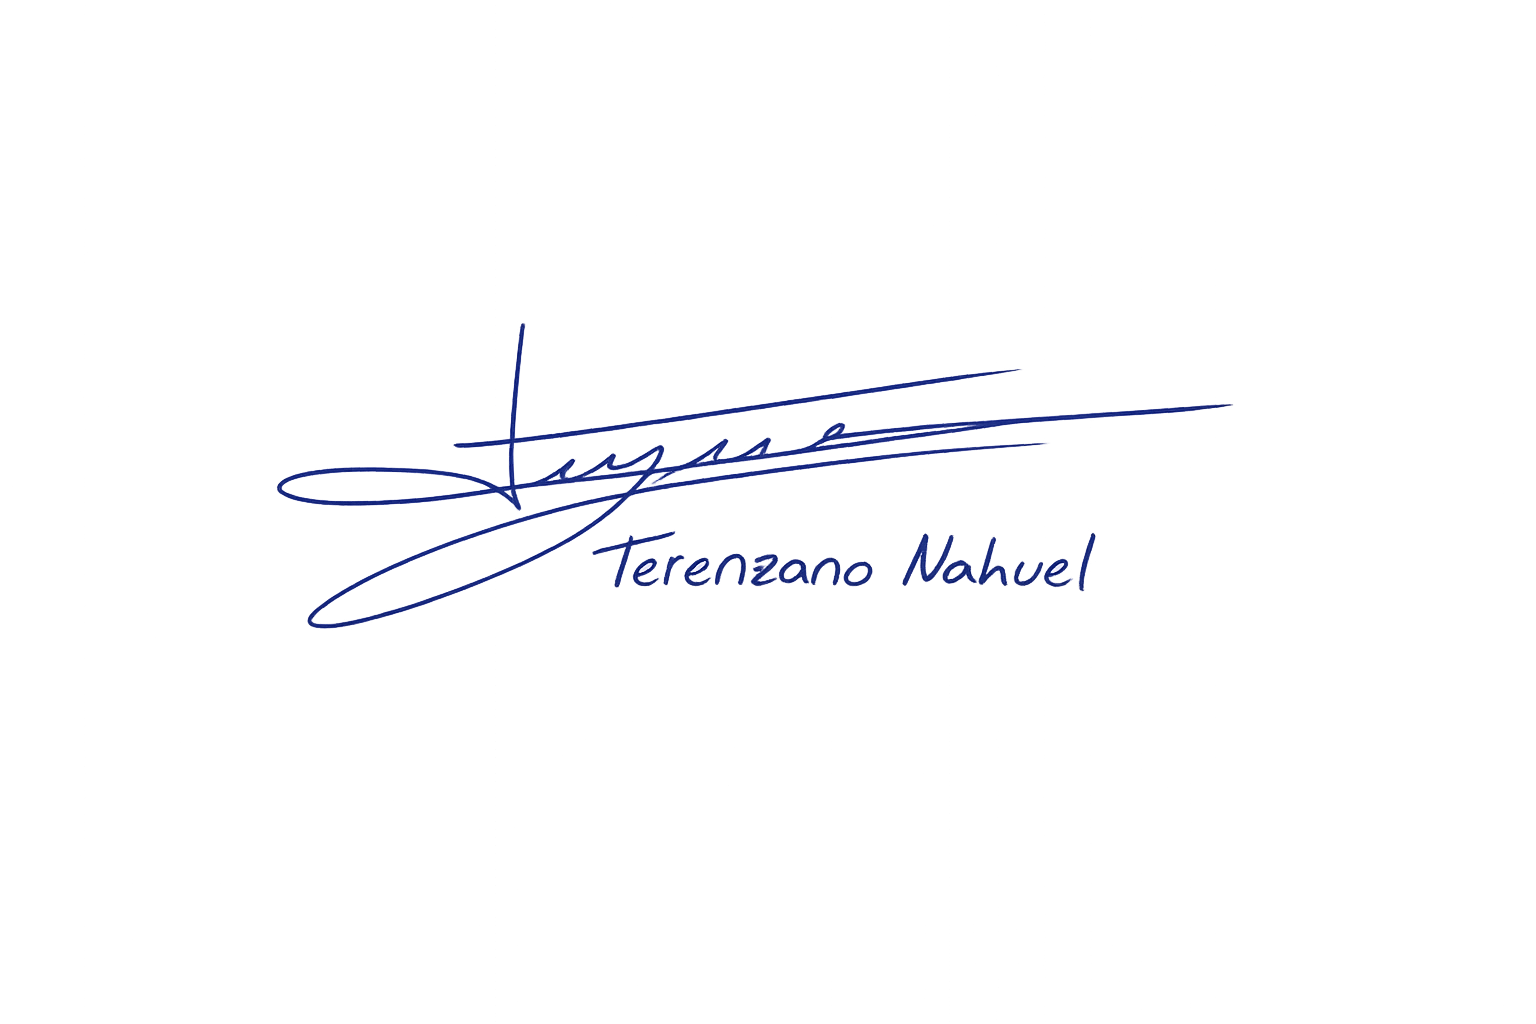 Terenzano Nahuel